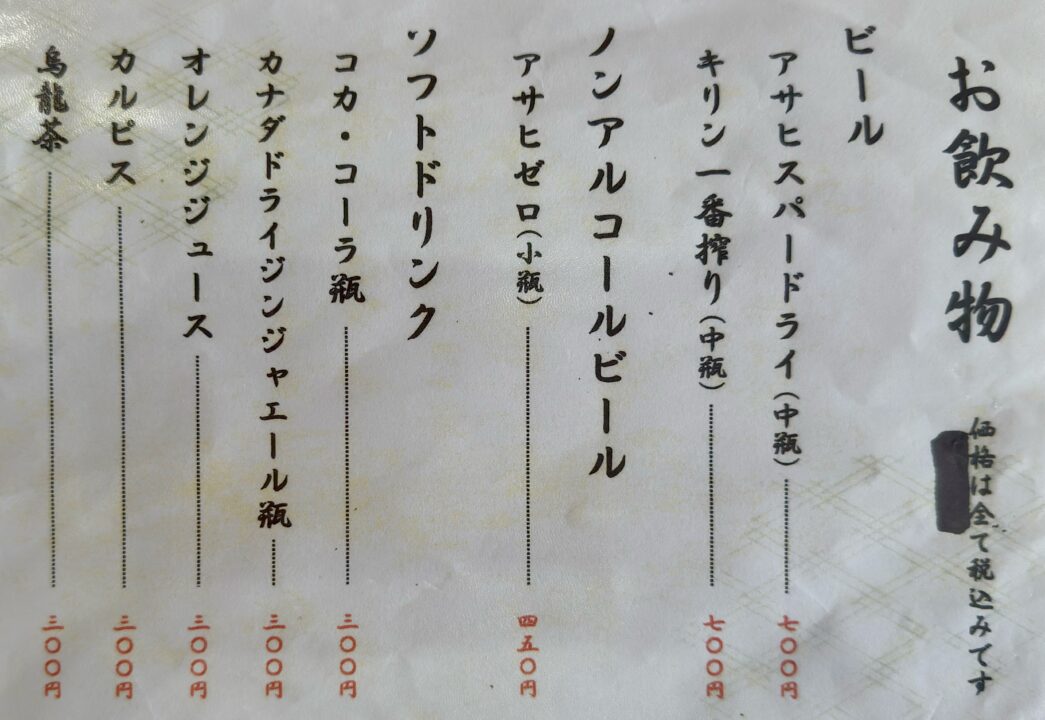 お飲み物
価格は全て税込みです
ビール
アサヒスパードライ（中瓶） 七〇〇円
キリン一番搾り（中瓶） 七〇〇円
ノンアルコールビール
アサヒゼロ（小瓶） 四五〇円
ソフトドリンク
コカ・コーラ瓶 三〇〇円
カナダドライジンジャエール瓶 三〇〇円
オレンジジュース 三〇〇円
カルピス 三〇〇円
烏龍茶 三〇〇円